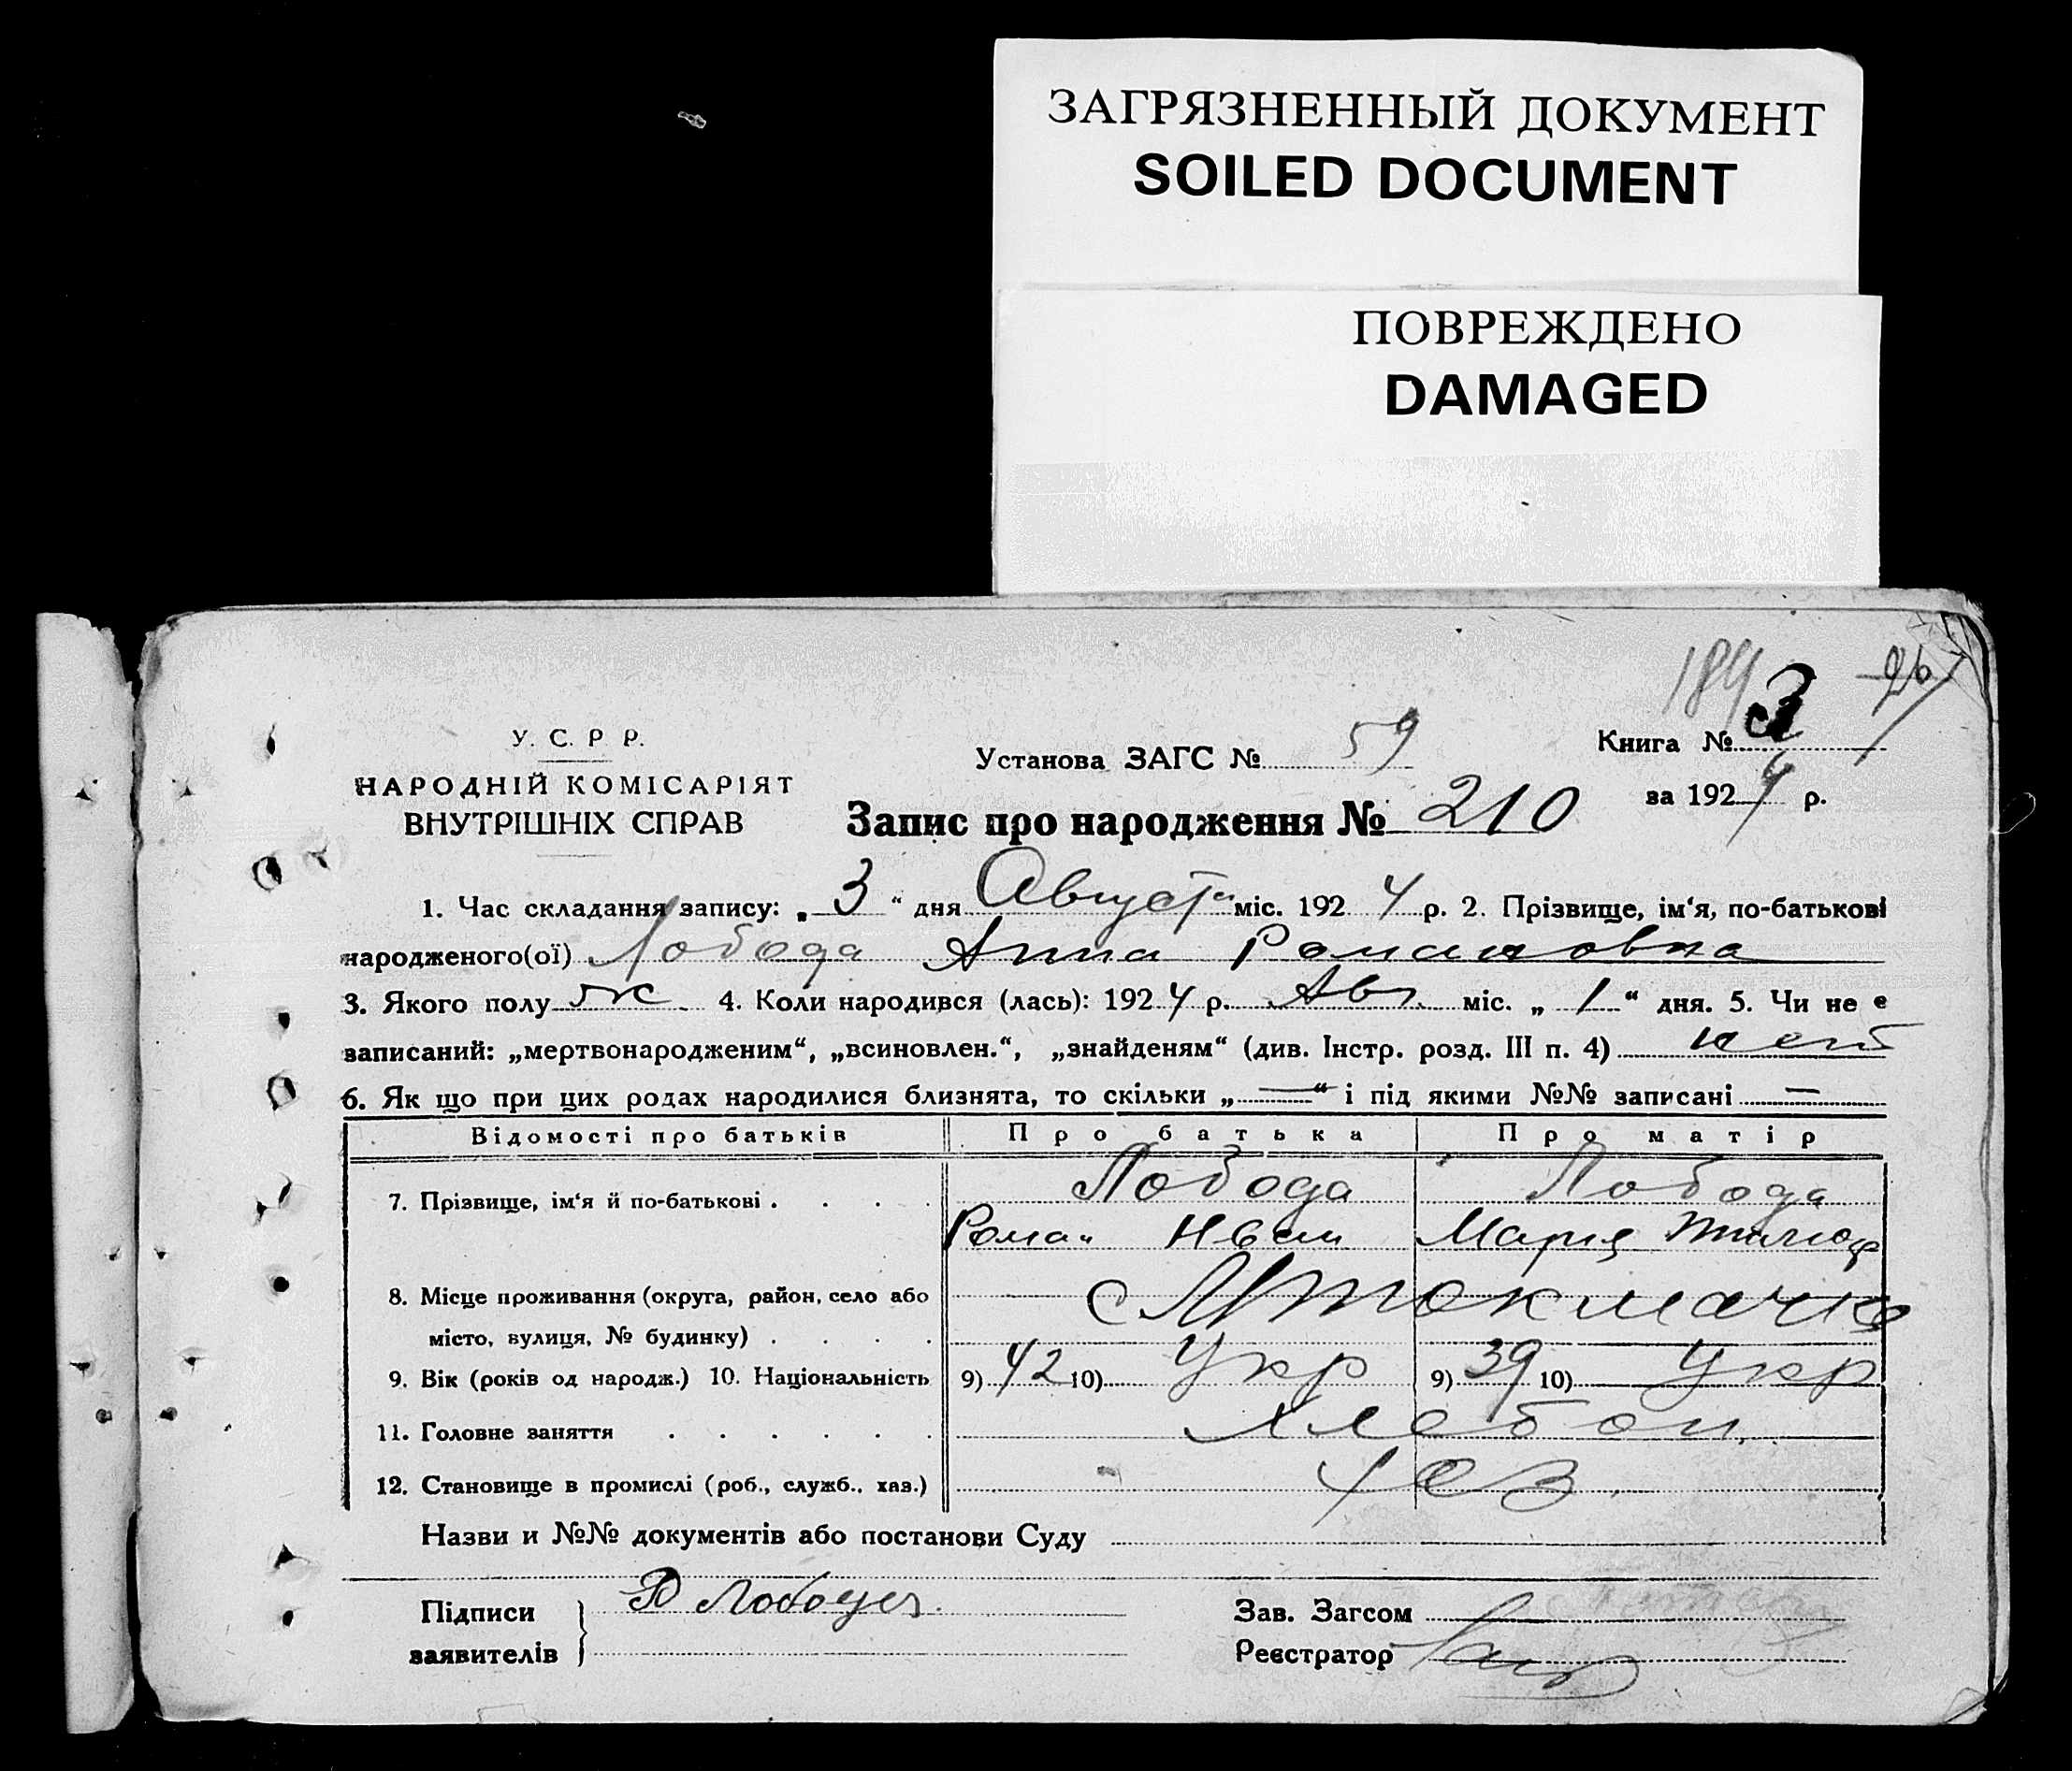 ЗАГРЯЗНЕННЫЙ ДОКУМЕНТ
SOILED DOCUMENT
ПОВРЕЖДЕНО
DAMAGED
У. С. Р Р.
НАРОДНІЙ КОМІСАРІЯТ
ВНУТРІШНІХ СПРАВ
Установа ЗАГС № 59
Книга № 3
за 1924 р.
Запис про народження № 210
1. Час складання запису: „ 3 “ дня Август міс. 1924 р. 2. Прізвище, ім‘я, по-батькові
народженого(ої) Лобода Анна Романовна
3. Якого полу ж 4. Коли народився (лась): 1924 р. Авг. міс. „ 1 “ дня. 5. Чи не є
записаний: „мертвонародженим“, „всиновлен.“, „знайденям“ (див. Інстр. розд. III п. 4) нет
6. Як що при цих родах народилися близнята, то скільки „ — “ і під якими №№ записані —
Відомості про батьків Про батька Про матір
7. Прізвище, ім‘я й по-батькові . . . . Лобода Лобода
Роман Иван Мария
8. Місце проживання (округа, район, село або
місто, вулиця, № будинку) . . . . с
9. Вік (років од народж.) 10. Національність 9) 42 10) Укр 9) 39 10) Укр
11. Головне заняття . . . . . . Хлебоп.
12. Становище в промислі (роб., служб., хаз.) хоз.
Назви и №№ документів або постанови Суду
Підписи Р Лобода
заявителів
Зав. Загсом
Реєстратор